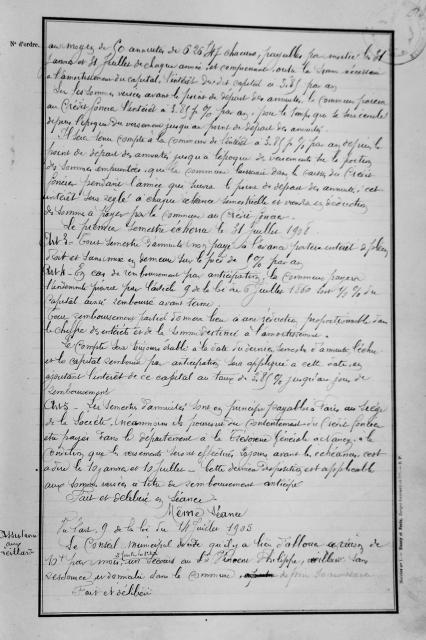 N° d'ordre.
au moyen de 50 annuités de 626 f chacune, payables par moitié le 31
Janvier et 31 Juillet de chaque année et comprenant, outre la somme nécessaire
à l'amortissement du capital, l'intérêt dudit capital à 3.85 par an
Sur les sommes versées avant le point de départ des annuités, la Commune paiera
au Crédit foncier l'intérêt à 3.85 f % par an, pour le temps qui sera écoulé
depuis l'époque du versement jusqu'au point de départ des annuités.
Il sera tenu compte à la Commune de l'intérêt à 3.85 f % par an depuis le
point de départ des annuités jusqu'à l'époque de versement sur la portion
des sommes empruntées que la commune laisserait dans la caisse du Crédit
foncier pendant l'année que suivra le point de départ des annuités; cet
intérêt sera réglé à chaque échéance semestrielle et viendra en déduction
des sommes à payer par la Commune au Crédit foncier.
Le premier semestre écherra le 31 juillet 1908
Art 3. Tout semestre d'annuité non payé à l'échéance portera intérêt de plein
droit et sans mise en demeure sur le pied de 5 % par an
Art 4. En cas de remboursement par anticipation, la Commune payera
l'indemnité prévue par l'article 9 de la loi du 6 Juillet 1860 soit ½ % du
capital ainsi remboursé avant terme.
Tout remboursement partiel donnera lieu à une réduction proportionnelle dans
le chiffre des intérêts et de la somme destinée à l'amortissement.
Le Compte sera toujours établi à la date du dernier semestre d'annuité échu
et le capital remboursé par anticipation sera appliqué à cette date, en
ajoutant l'intérêt de ce capital au taux de 3.85 % jusqu'au jour de
remboursement
Art 5. Les semestres d'annuités sont en principe payables à Paris au Siège
de la Société. Néanmoins ils pourront du consentement du Crédit foncier
être payés dans le département à la Trésorerie Générale à la
condition que les versements seront effectués 20 jours avant les échéances, c'est
à dire le 10 janvier et 10 juillet. Cette dernière disposition est applicable
aux sommes versées à titre de remboursement anticipé
Fait et délibéré en séance
Même Séance
Assistance
aux
vieillards
Vu l'art. 9 de la loi du 14 juillet 1905
Le Conseil municipal décide qu'il y a lieu d'allouer à raison de
10 f par mois, un secours au Sr Philippe, vieillard sans
ressources et domicilié dans la commune
Fait et délibéré